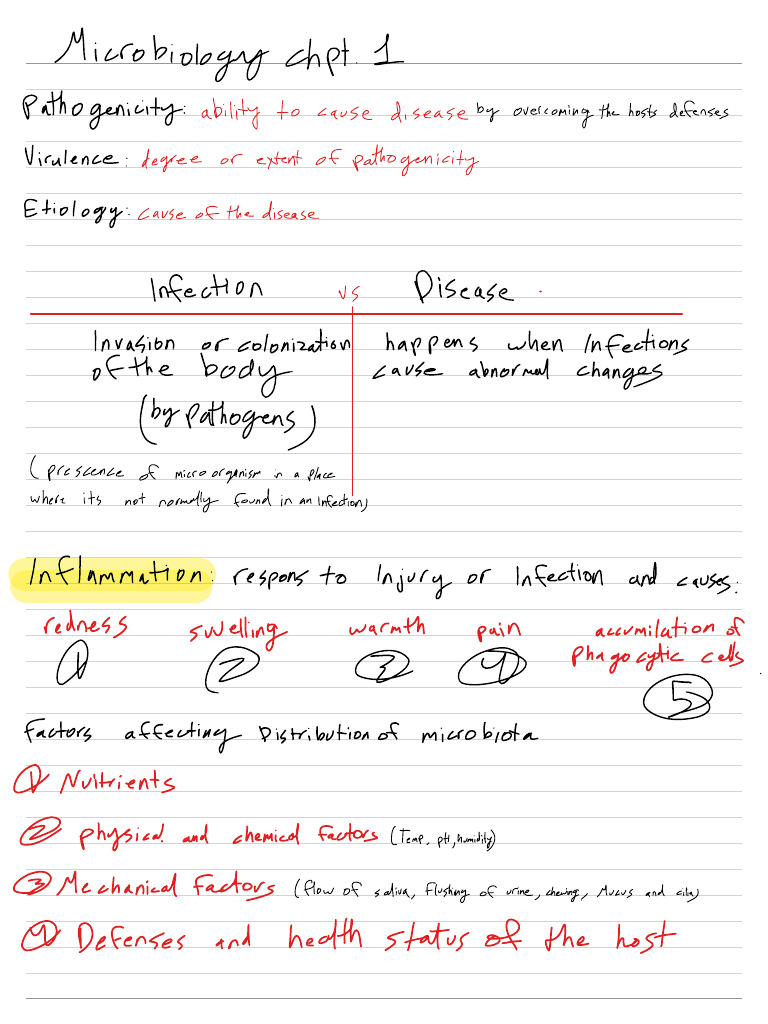 Microbiology chpt. 1
Pathogenicity: ability to cause disease by overcoming the hosts defenses
Virulence: degree or extent of pathogenicity
Etiology: cause of the disease
Infection vs Disease
Invasion or colonization
of the body
(by Pathogens)
happens when Infections
cause abnormal changes
(prescence of microorganism in a place
where its not normally found in an Infection)
Inflammation: respons to Injury or Infection and causes:
redness swelling warmth pain accumilation of
phagocytic cells
1 2 3 4 5
Factors affecting Distribution of microbiota
1 Nultrients
2 physical and chemical factors (Temp, pH, humidity)
3 Mechanical Factors (flow of saliva, flushing of urine, chewing, Mucus and cilia)
4 Defenses and health status of the host